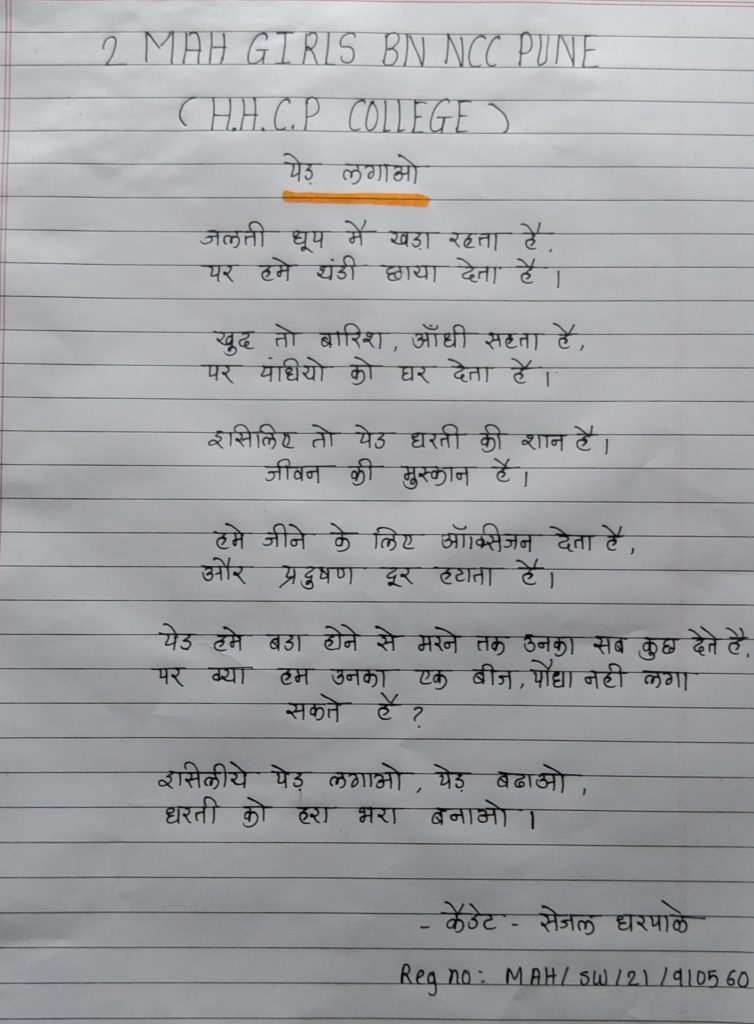 2 MAH GIRLS BN NCC PUNE
(H.H.C.P COLLEGE)
पेड़ लगाओ
जलती धूप मै खडा रहता है,
पर हमे थंडी छाया देता है।
खुद तो बारिश, आँधी सहता है,
पर पंछियो को घर देता है।
इसिलिए तो पेड धरती की शान है।
जीवन की मुस्कान है।
हमे जीने के लिए ऑक्सिजन देता है,
और प्रदुषण दूर हटाता है।
पेड हमे बडा होने से मरने तक उनका सब कुछ देते है,
पर क्या हम उनका एक बीज, पौधा नही लगा
सकते है ?
इसिलीये पेड़ लगाओ, पेड़ बढाओ,
धरती को हरा भरा बनाओ।
- कैडेट - सेजल धरपाळे
Reg no: MAH/SW/21/910560